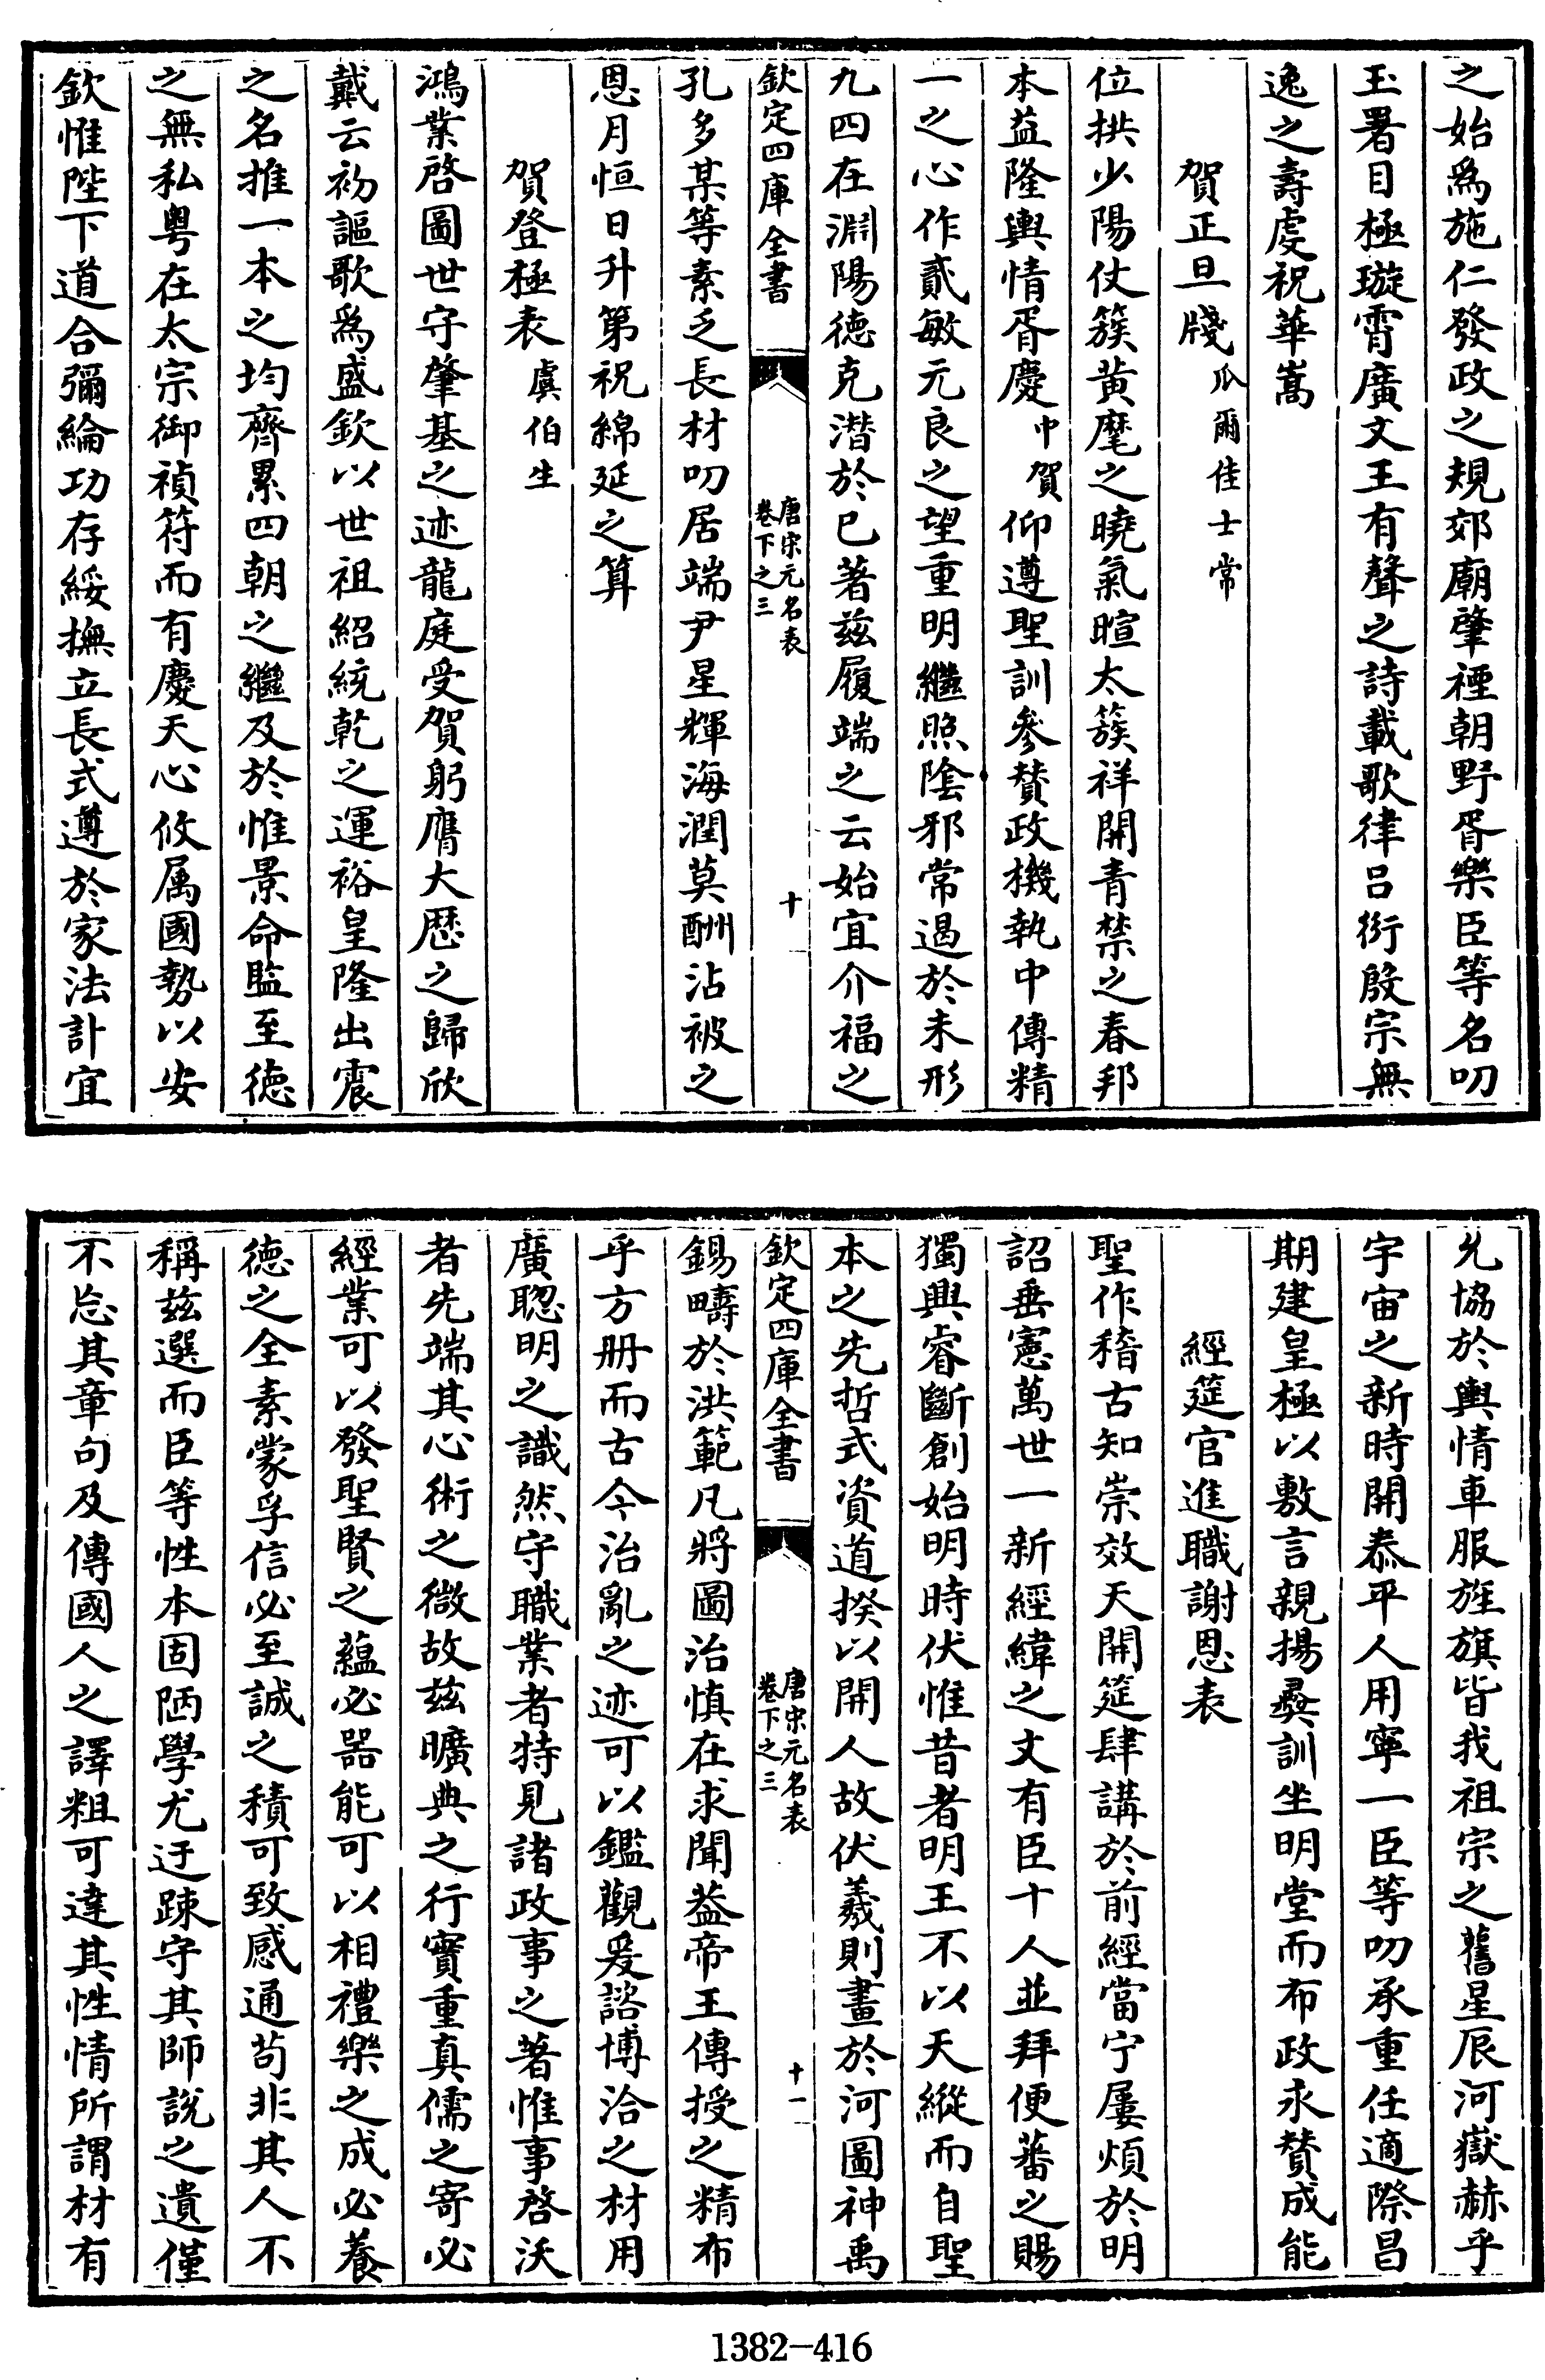 之始為施仁發政之規郊廟肇禋朝野胥樂臣等名叨
玉署目極璇霄廣文王有聲之詩載歌律呂衍殷宗無
逸之壽虔祝華嵩
賀正旦牋 瓜爾佳士常
位拱少陽仗簇黄麾之曉氣暄太簇祥開青禁之春邦
本益隆輿情胥慶中賀仰遵聖訓參賛政機執中傳精
一之心作貳敏元良之望重明繼照陰邪常遏於未形
九四在淵陽徳克潜於已著兹履端之云始宜介福之
欽定四庫全書 唐宋元名表 卷下之三 十
孔多某等素乏長材叨居端尹星輝海潤莫酬沾被之
恩月恒日升第祝綿延之算
賀登極表 虞伯生
鴻業啓圖世守肇基之迹龍庭受賀躬膺大歴之歸欣
戴云初謳歌為盛欽以世祖紹統乾之運裕皇隆出震
之名推一本之均齊累四朝之繼及於惟景命監至徳
之無私粤在太宗御禎符而有慶天心攸属國勢以安
欽惟陛下道合彌綸功存綏撫立長式遵於家法計宜
允協於輿情車服旌旗皆我祖宗之舊星辰河嶽赫乎
宇宙之新時開泰平人用寧一臣等叨承重任適際昌
期建皇極以敷言親揚彞訓坐明堂而布政永賛成能
經筵官進職謝恩表
聖作稽古知崇效天開筵肆講於前經當宁屢煩於明
詔垂憲萬世一新經緯之文有臣十人並拜便蕃之賜
獨興睿斷創始明時伏惟昔者明王不以天縱而自聖
本之先哲式資道揆以開人故伏羲則畫於河圖神禹
欽定四庫全書 唐宋元名表 卷下之三 十一
錫疇於洪範凡將圖治慎在求聞益帝王傳授之精布
乎方册而古今治亂之迹可以鑑觀爰諮博洽之材用
廣聰明之識然守職業者特見諸政事之著惟事啓沃
者先端其心術之微故兹曠典之行實重真儒之寄必
經業可以發聖賢之藴必器能可以相禮樂之成必養
徳之全素蒙孚信必至誠之積可致感通苟非其人不
稱兹選而臣等性本固陋學尤迂疎守其師説之遺僅
不忘其章句及傳國人之譯粗可達其性情所謂材有
1382-416